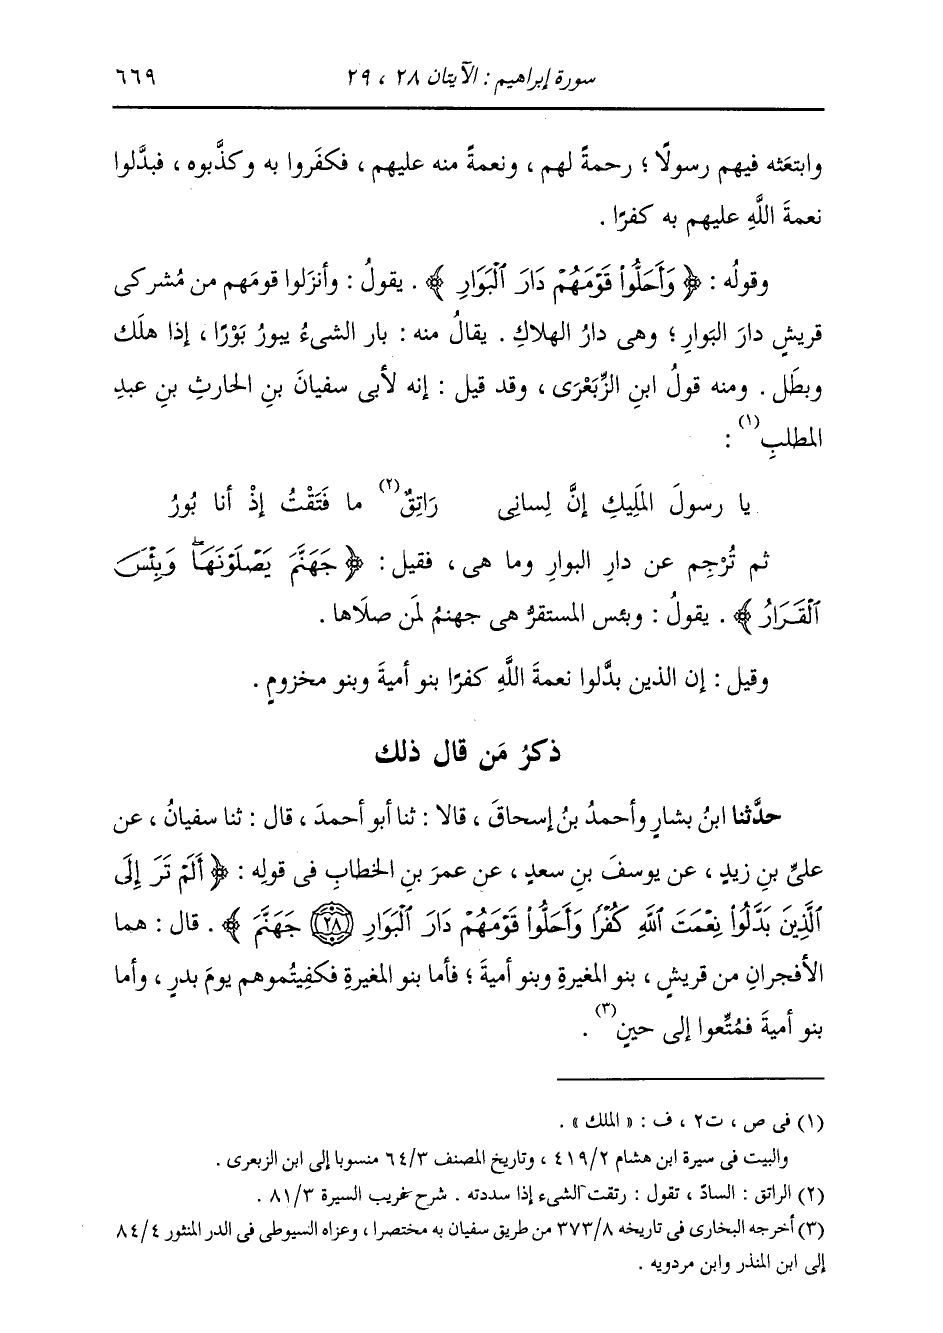 سورة إبراهيم : الآيتان ٢٨ ، ٢٩ ٦٦٩
وابتعَثه فيهم رسولًا ؛ رحمةً لهم ، ونعمةً منه عليهم ، فكفَروا به وكذَّبوه ، فبدَّلوا
نعمةَ اللَّهِ عليهم به كفرًا .
وقولُه : ﴿ وَأَحَلُّوا۟ قَوْمَهُمْ دَارَ ٱلْبَوَارِ ﴾ . يقولُ : وأنزَلوا قومَهم من مُشركى
قريشٍ دارَ البَوارِ ؛ وهى دارُ الهلاكِ . يقالُ منه : بار الشىءُ يبورُ بَوْرًا ، إذا هلَك
وبطَل . ومنه قولُ ابنِ الزِّبَعْرَى ، وقد قيل : إنه لأبى سفيانَ بنِ الحارثِ بنِ عبدِ
المطلبِ(١) :
يا رسولَ المَلِيكِ إنَّ لِسانِى رَاتِقٌ(٢) ما فَتَقْتُ إذْ أنا بُورُ
ثم تُرْجِم عن دارِ البوارِ وما هى ، فقيل : ﴿ جَهَنَّمَ يَصْلَوْنَهَا ۖ وَبِئْسَ
ٱلْقَرَارُ ﴾ . يقولُ : وبئس المستقرُّ هى جهنمُ لمَن صلَاها .
وقيل : إن الذين بدَّلوا نعمةَ اللَّهِ كفرًا بنو أميةَ وبنو مخزومٍ .
ذكرُ مَن قال ذلك
حدَّثنا ابنُ بشارٍ وأحمدُ بنُ إسحاقَ ، قالا : ثنا أبو أحمدَ ، قال : ثنا سفيانُ ، عن
علىِّ بنِ زيدٍ ، عن يوسفَ بنِ سعدٍ ، عن عمرَ بنِ الخطابِ فى قولِه : ﴿ أَلَمْ تَرَ إِلَى
ٱلَّذِينَ بَدَّلُوا۟ نِعْمَتَ ٱللَّهِ كُفْرًا وَأَحَلُّوا۟ قَوْمَهُمْ دَارَ ٱلْبَوَارِ ﴿٢٨﴾ جَهَنَّمَ ﴾ . قال : هما
الأفجرانِ من قريشٍ ، بنو المغيرةِ وبنو أميةَ ؛ فأما بنو المغيرةِ فكفِيتُموهم يومَ بدرٍ ، وأما
بنو أميةَ فمُتِّعوا إلى حينٍ(٣) .
(١) فى ص ، ت٢ ، ف : « الملك » .
والبيت فى سيرة ابن هشام ٤١٩/٢ ، وتاريخ المصنف ٦٤/٣ منسوبا إلى ابن الزبعرى .
(٢) الراتق : السادّ ، تقول : رتقت الشىء إذا سددته . شرح غريب السيرة ٨١/٣ .
(٣) أخرجه البخارى فى تاريخه ٣٧٣/٨ من طريق سفيان به مختصرا ، وعزاه السيوطى فى الدر المنثور ٨٤/٤
إلى ابن المنذر وابن مردويه .